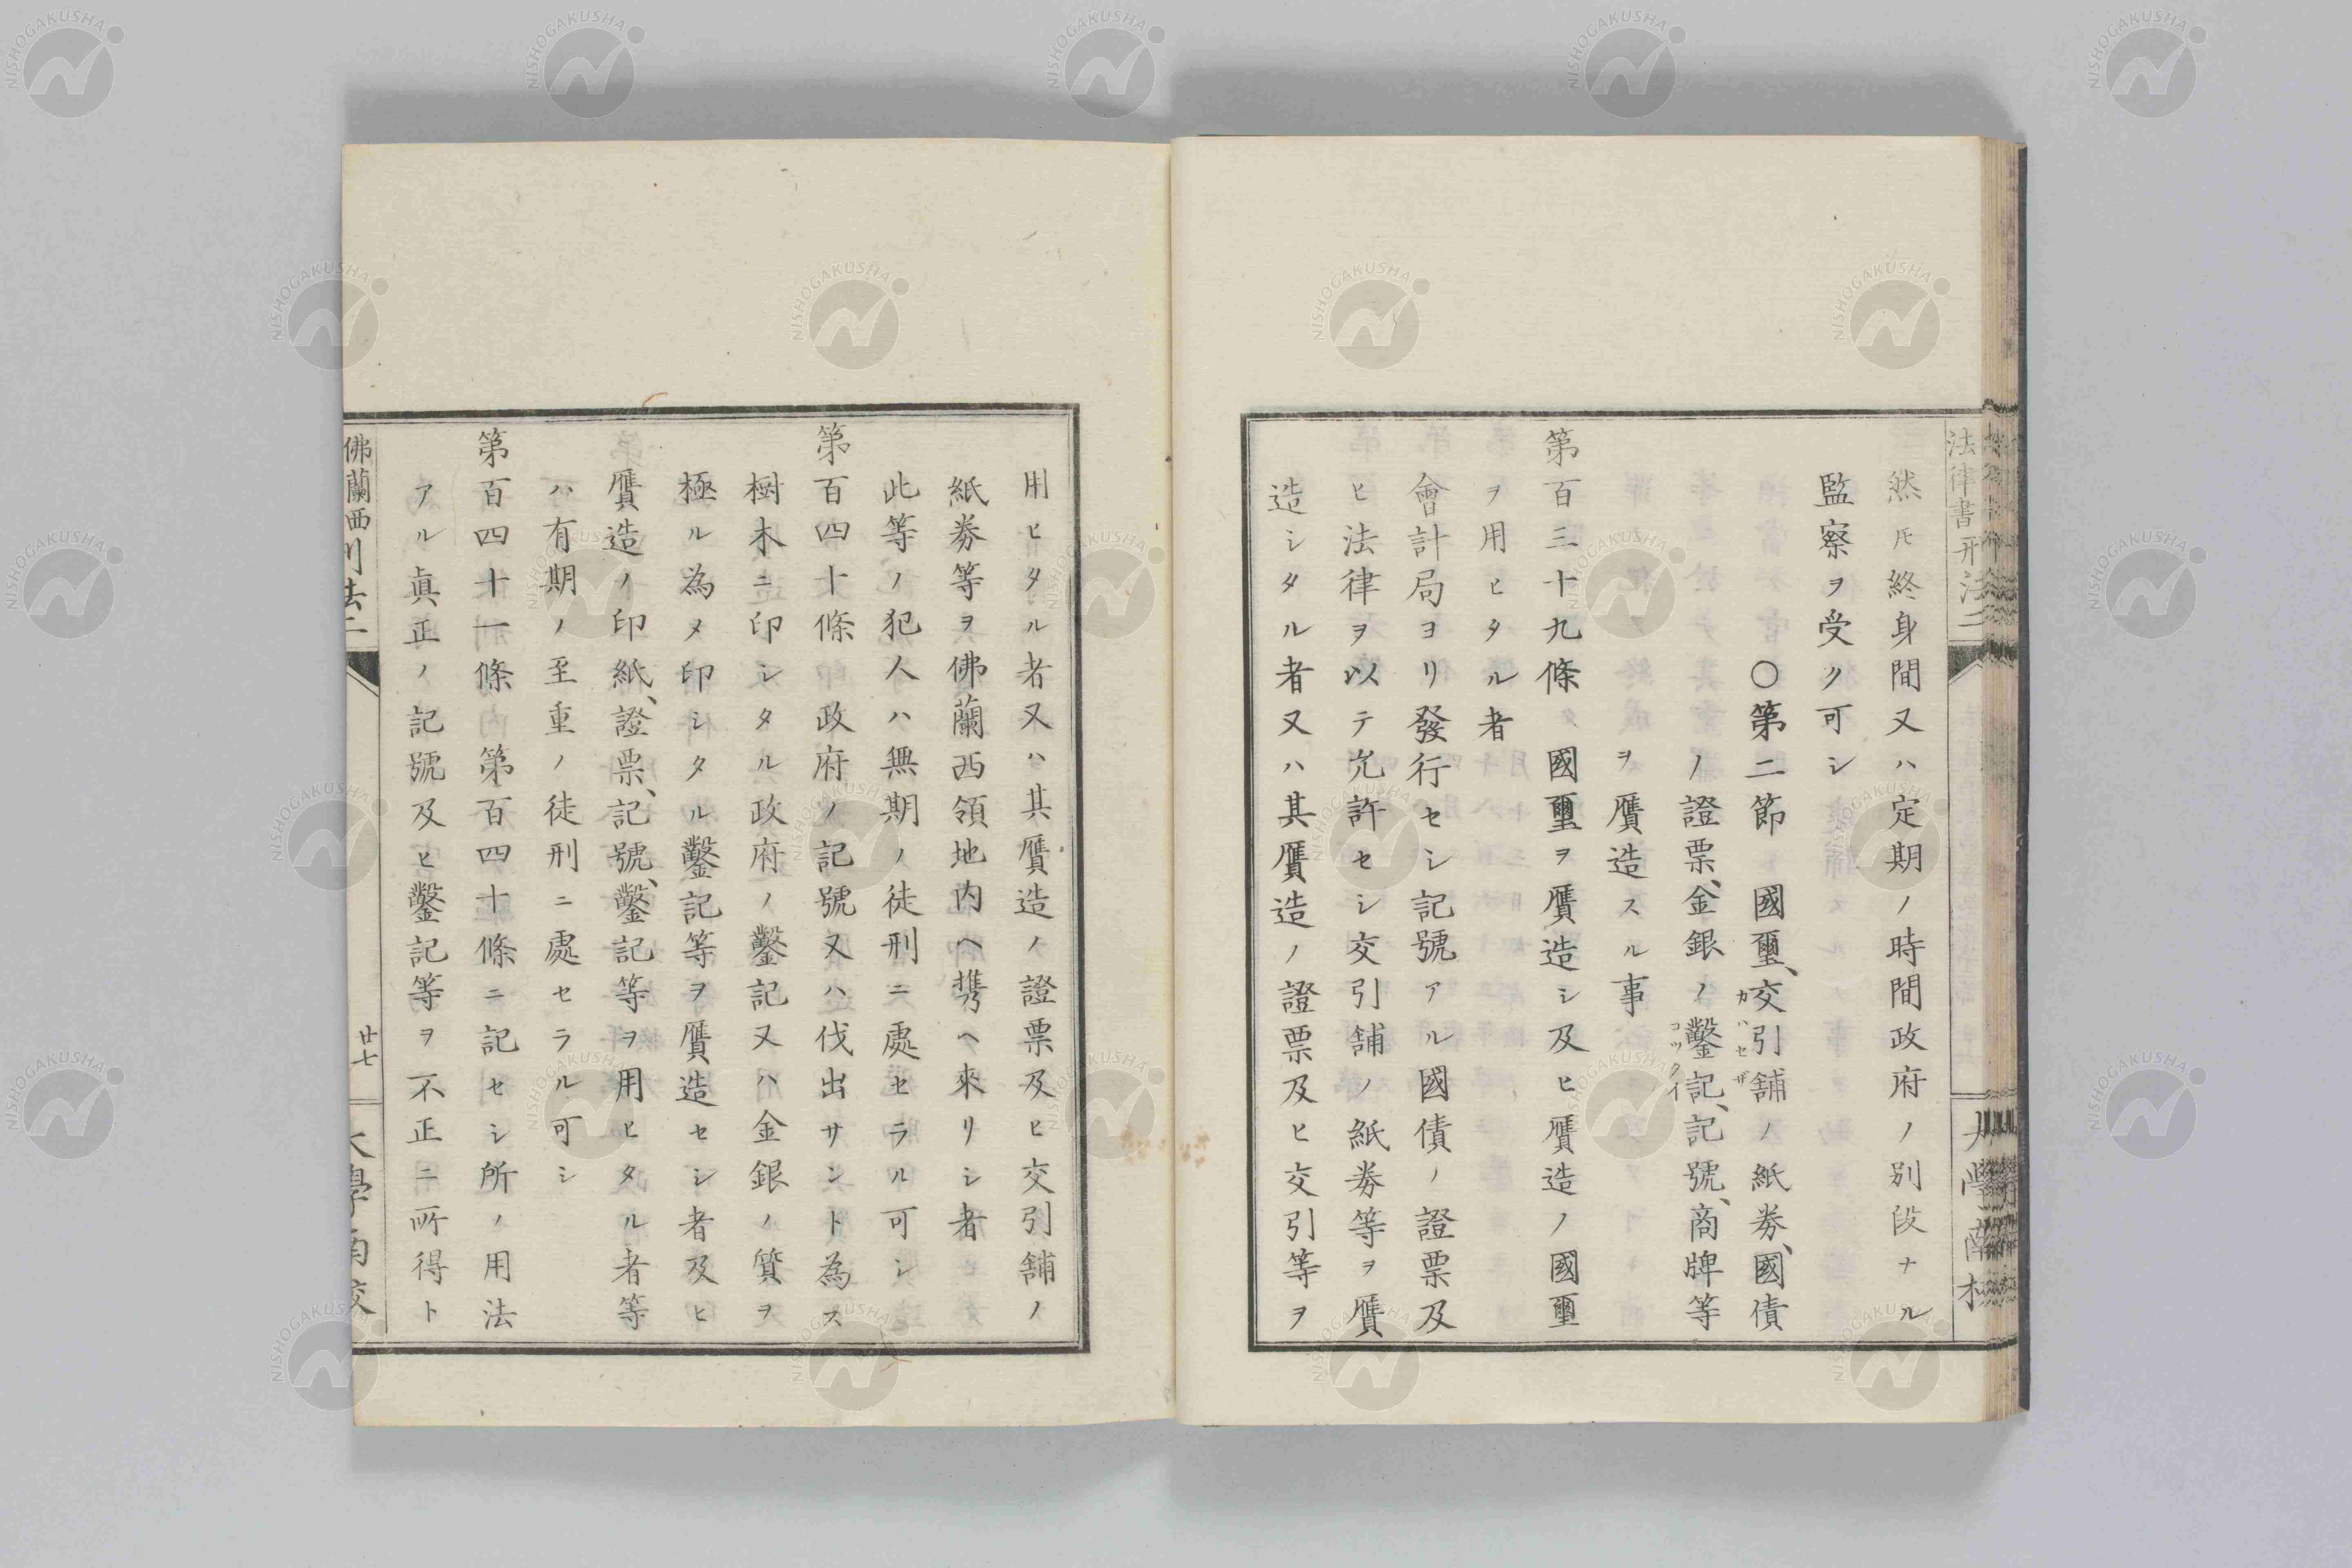 法律書刑法二
然𪜈終身間又ハ定期ノ時間政府ノ別段ナル
監察ヲ受ク可シ
〇第二節 國璽、交引舗ノ紙劵、國債
カハセザ
ノ證票、金銀ノ鑿記、記號、商牌等
コックイ
ヲ贋造スル事
第百三十九條 國璽ヲ贋造シ及ヒ贋造ノ國璽
ヲ用ヒタル者
會計局ヨリ發行セシ記號アル國債ノ證票及
ヒ法律ヲ以テ允許セシ交引舗ノ紙劵等ヲ贋
造シタル者又ハ其贋造ノ證票及ヒ交引等ヲ
用ヒタル者又ハ其贋造ノ證票及ヒ交引舗ノ
紙劵等ヲ佛蘭西領地内ヘ携ヘ來リシ者
此等ノ犯人ハ無期ノ徒刑ニ處セラル可シ
第百四十條 政府ノ記號又ハ伐出サント為ス
樹木ニ印シタル政府ノ鑿記又ハ金銀ノ質ヲ
極ル為メ印シタル鑿記等ヲ贋造セシ者及ヒ
贋造ノ印紙、證票、記號、鑿記等ヲ用ヒタル者等
ハ有期ノ至重ノ徒刑ニ處セラル可シ
第百四十一條 第百四十條ニ記セシ所ノ用法
アル眞正ノ記號及ヒ鑿記等ヲ不正ニ所得ト
佛蘭西刑法二
廿七
大學南校